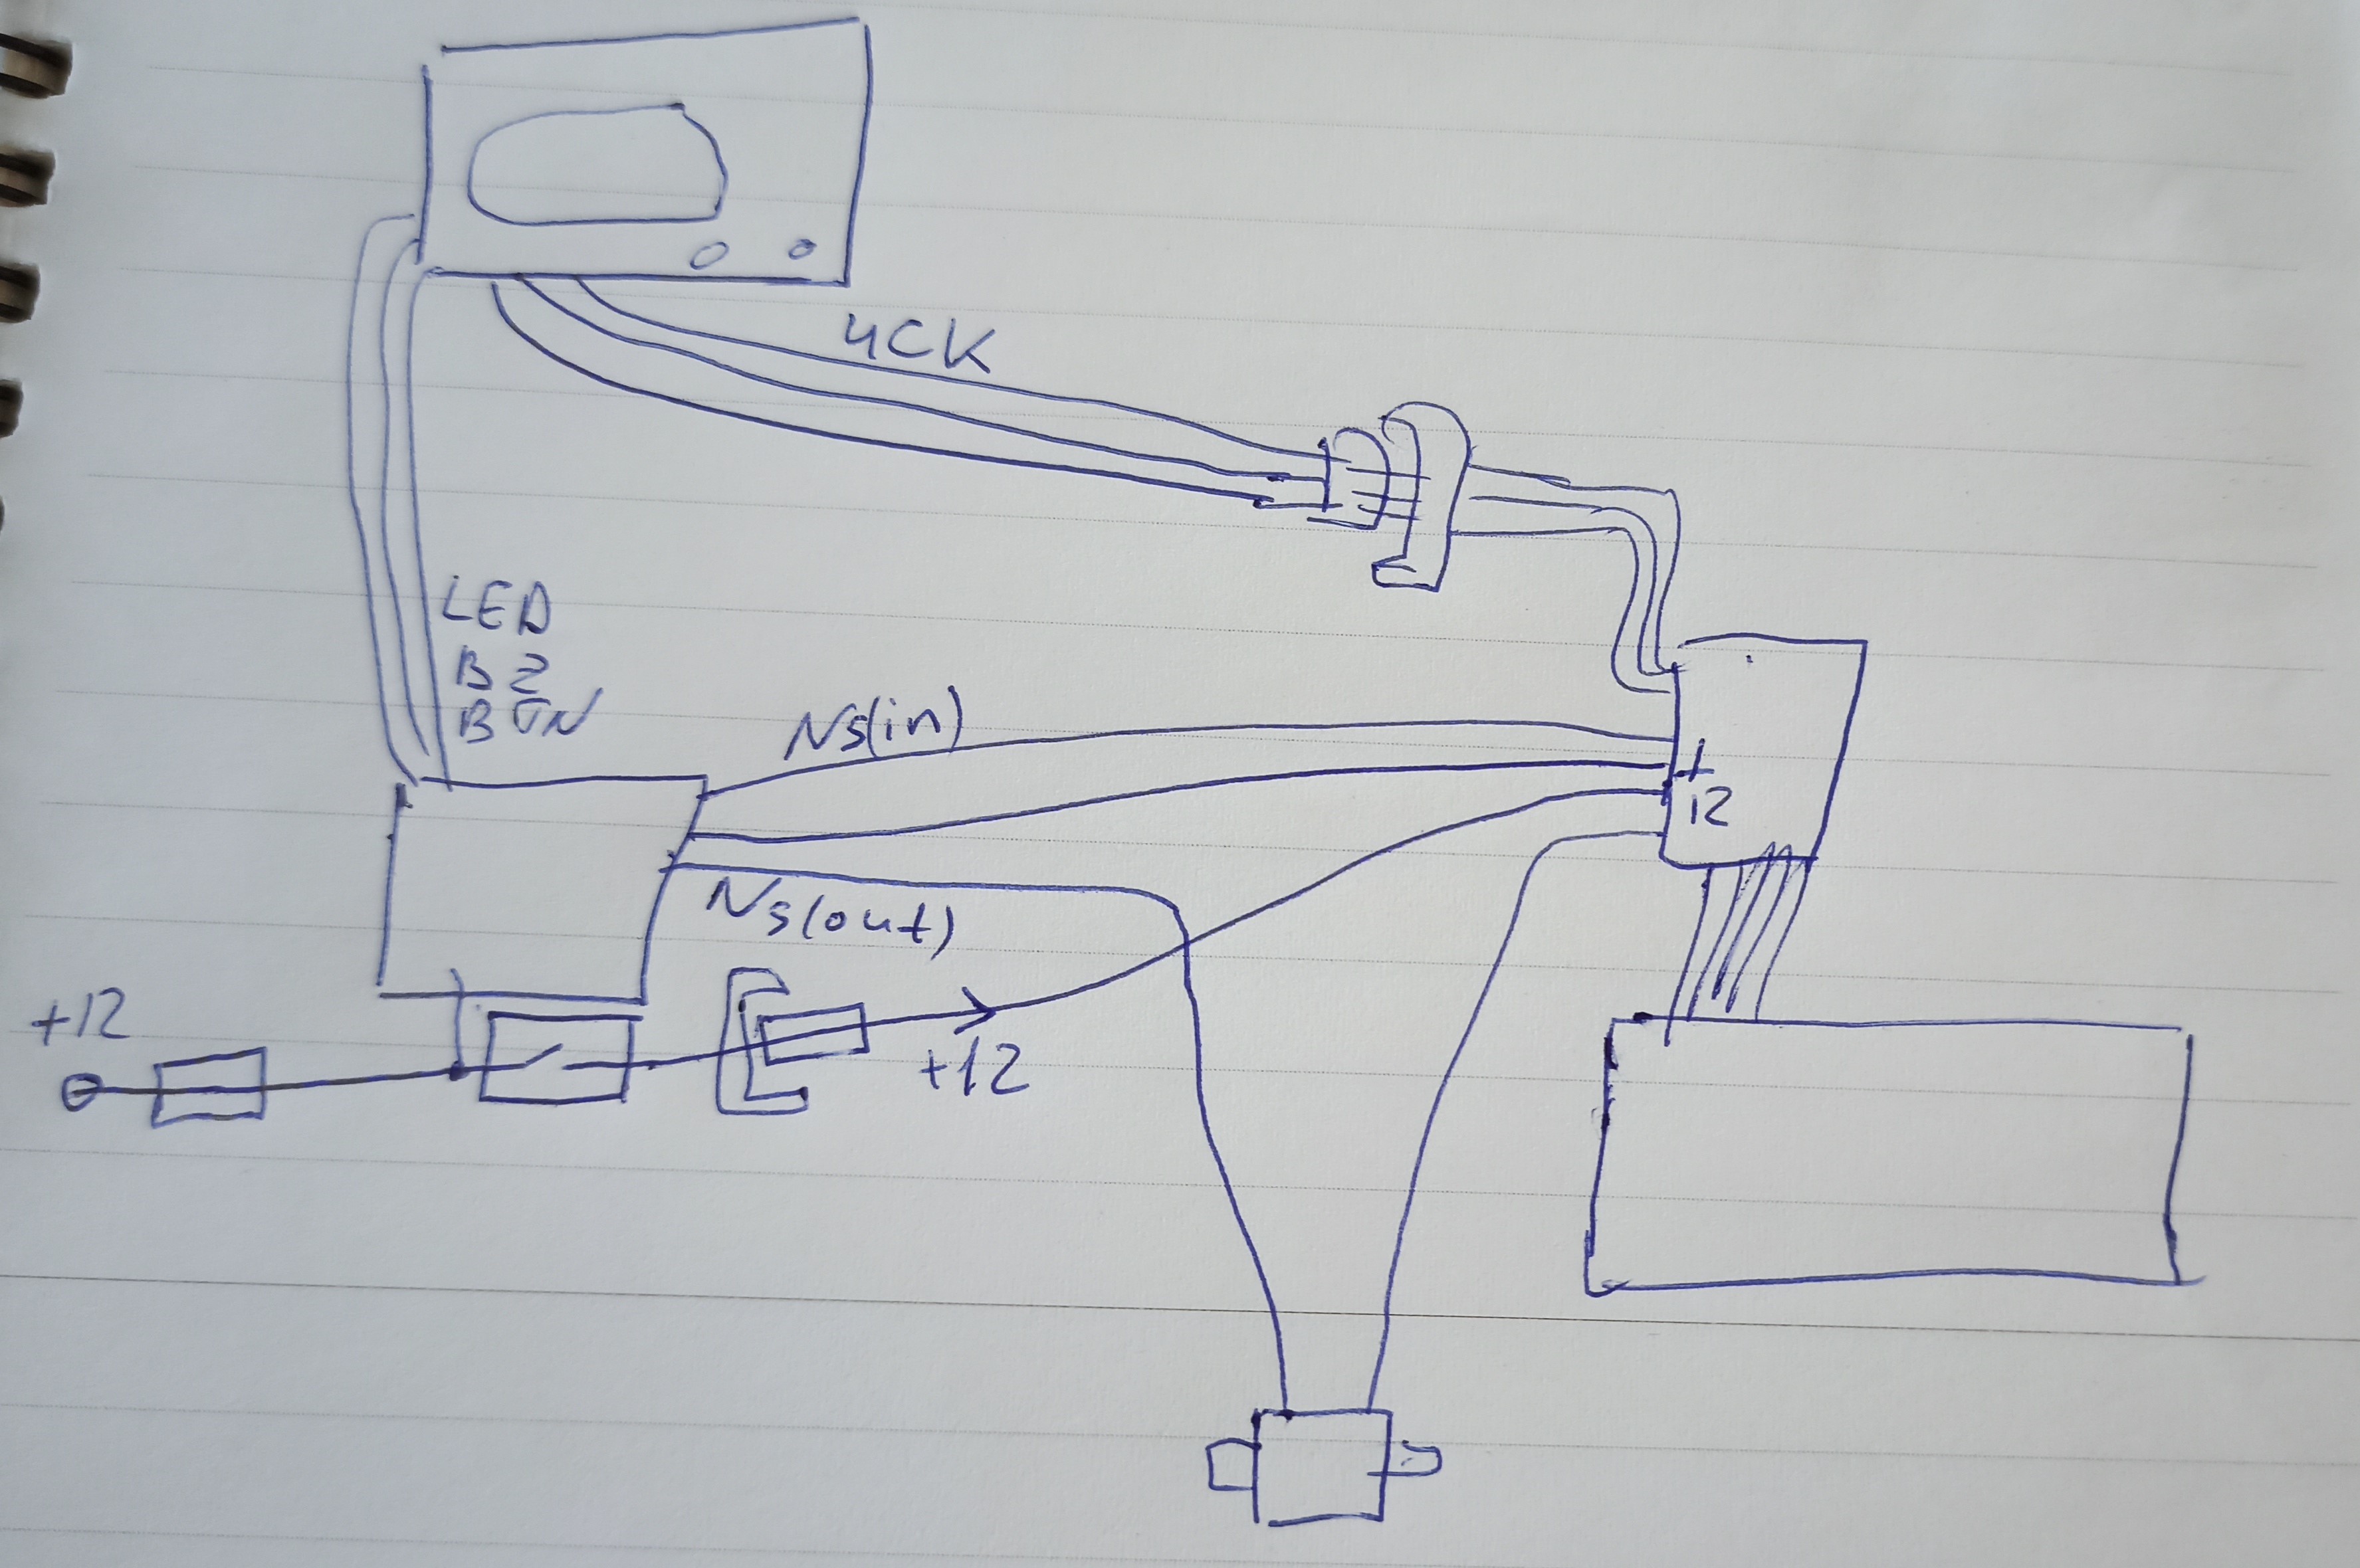 UCK
LED
BZ
BTN
Ns(in)
+
12
Ns(out)
+12
+12